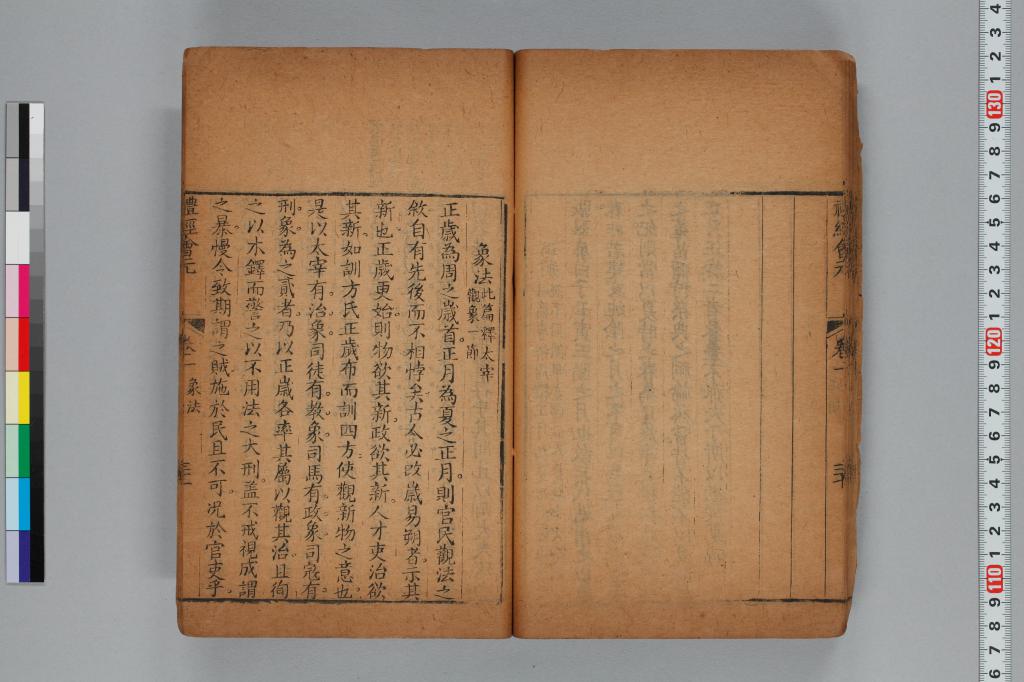 禮經會元
卷一
象法此篇釋太宰
觀象一節
正歲為周之歲首正月為夏之正月則官民觀法之
敘自有先後而不相悖矣古人必改歲易朔者示其
新也正歲更始則物欲其新政欲其新人才吏治欲
其新如訓方氏正歲布而訓四方使觀新物之意也
是以太宰有治象司徒有教象司馬有政象司寇有
刑象為之貳者乃以正歲各率其屬以觀其治且徇
之以木鐸而警之以不用法之大刑蓋不戒視成謂
之暴慢令致期謂之賊施於民且不可況於官吏乎
禮經會元
卷一
象法